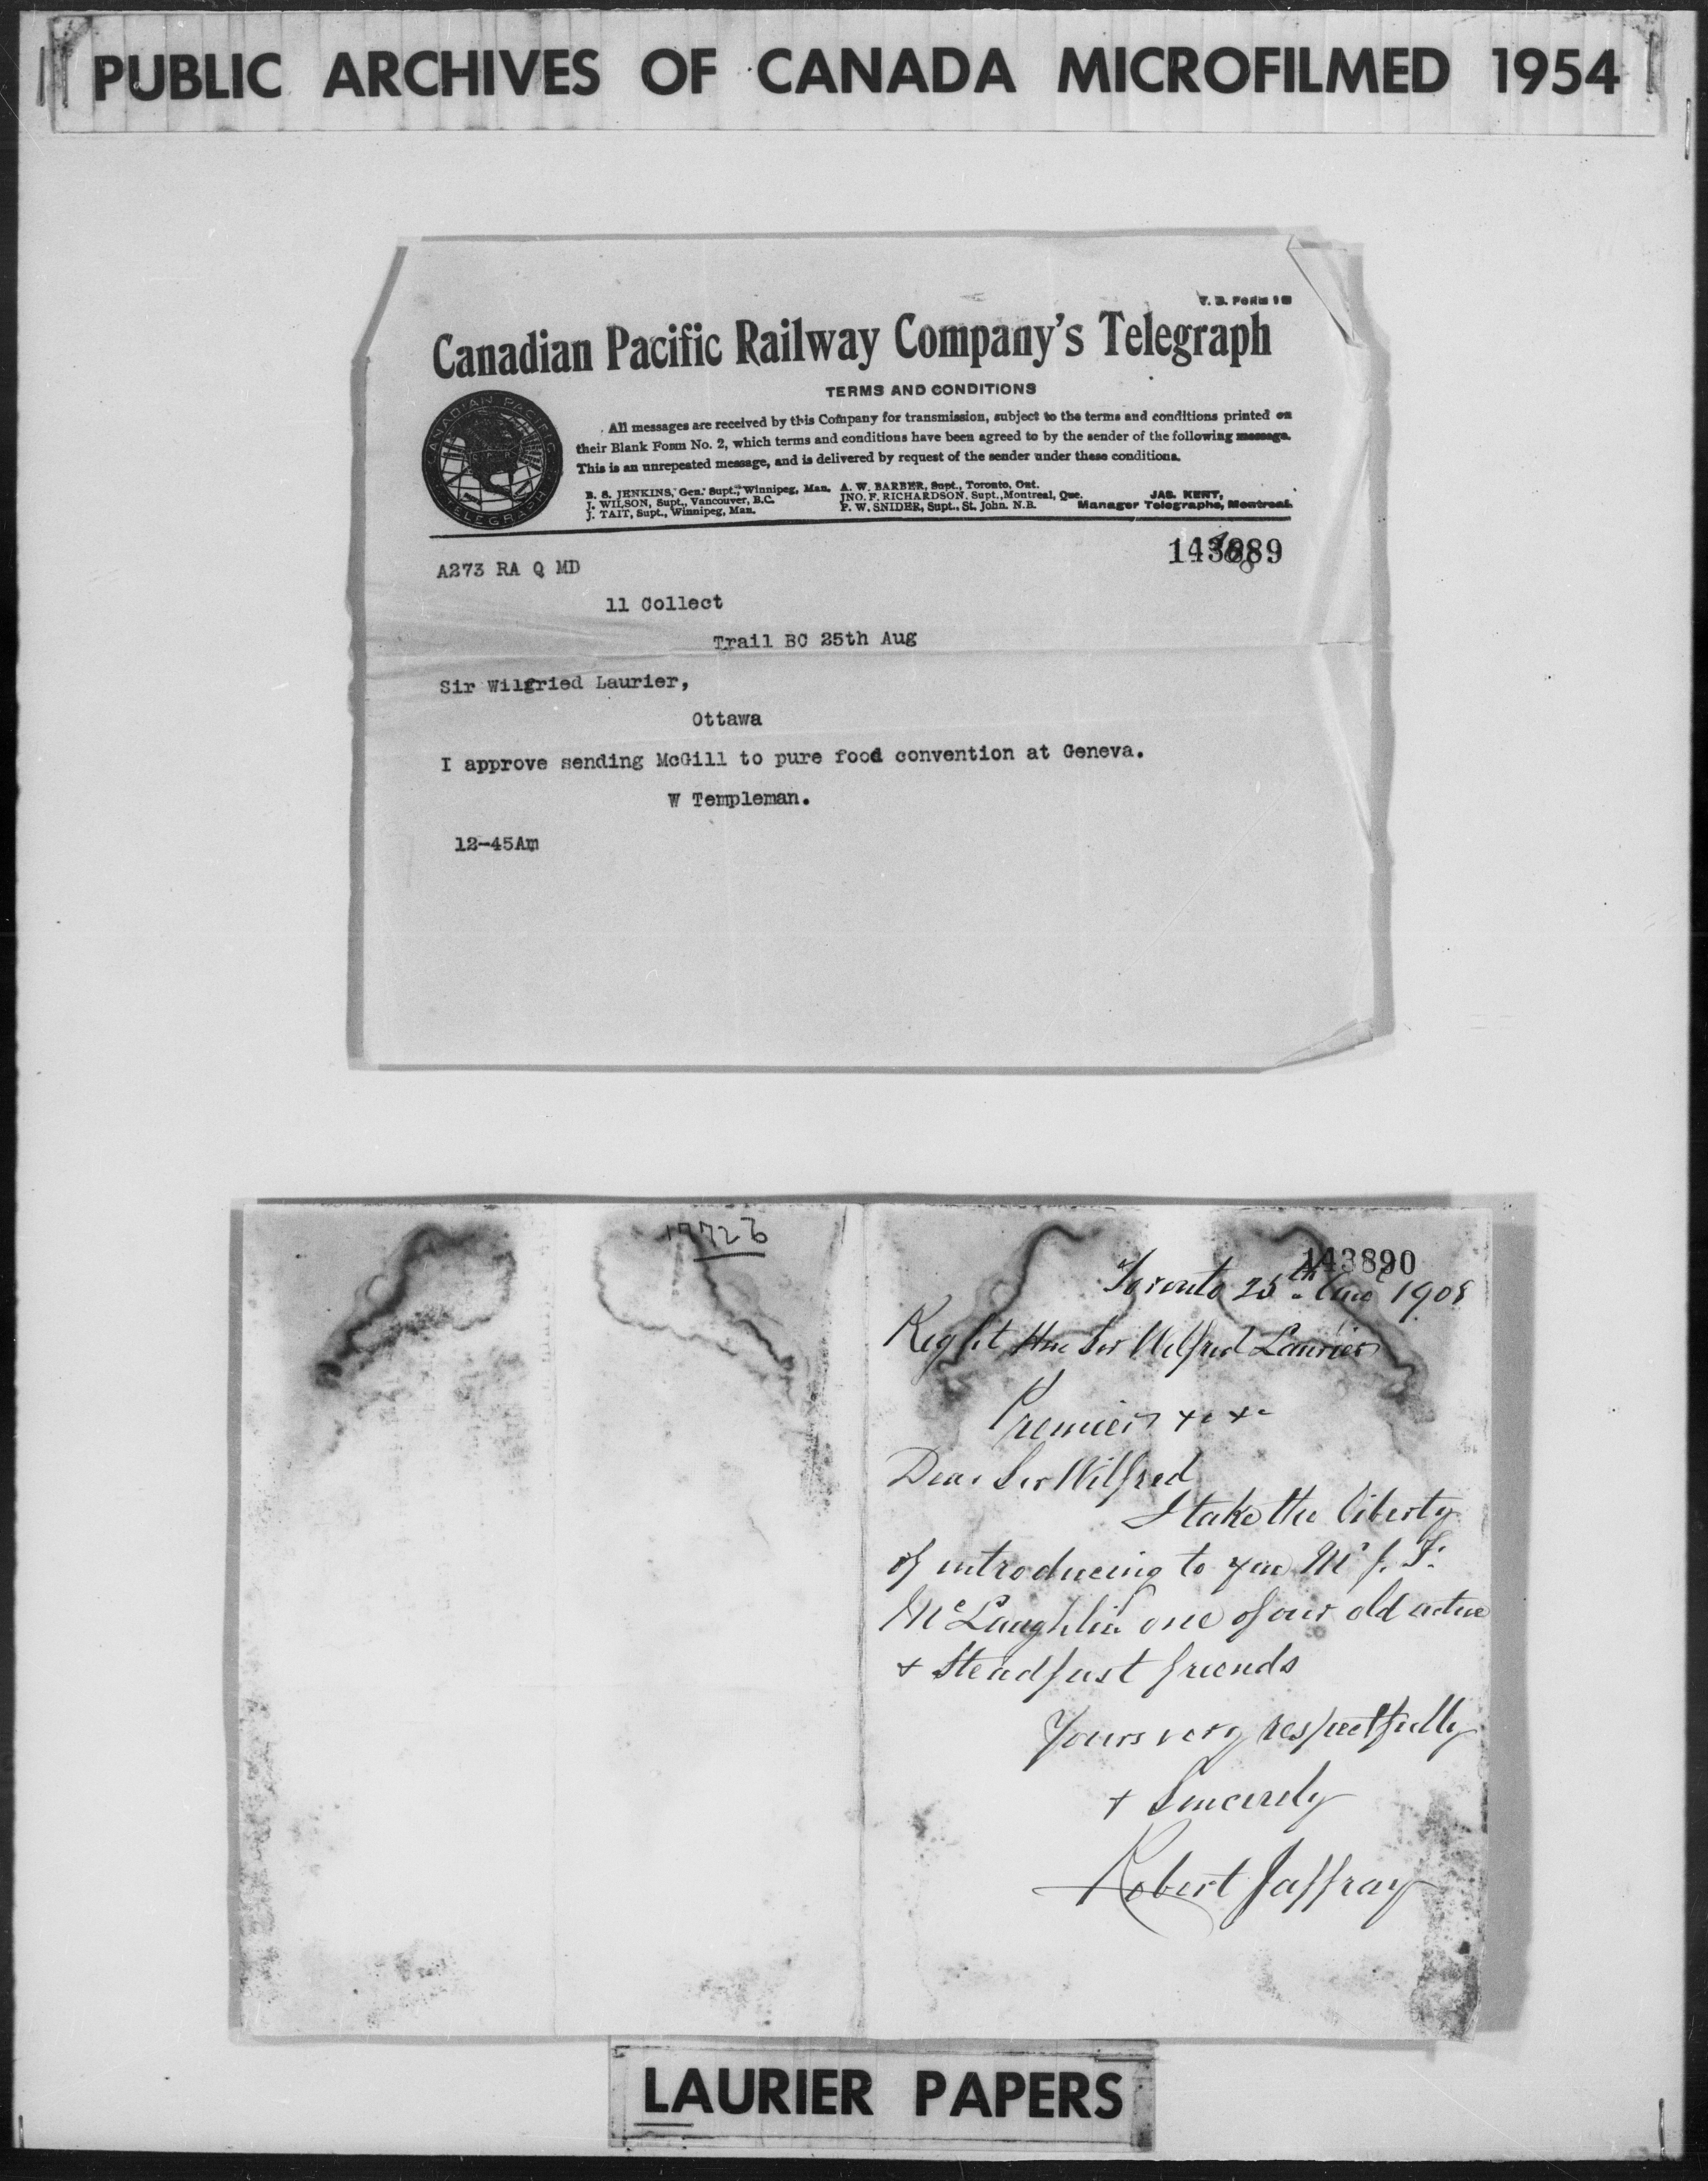 PUBLIC ARCHIVES OF CANADA MICROFILMED 1954
Canadian Pacific Railway Company's Telegraph
TERMS AND CONDITIONS
All messages are received by this Company for transmission, subject to the terms and conditions printed on
their Blank Form No. 2, which terms and conditions have been agreed to by the sender of the following message.
This is an unrepeated message, and is delivered by request of the sender under these conditions.
B. S. JENKINS, Gen. Supt., Winnipeg, Man.
J. WILSON, Supt., Vancouver, B.C.
J. TAIT, Supt., Winnipeg, Man.
A. W. BARBER, Supt., Toronto, Ont.
JNO. F. RICHARDSON, Supt., Montreal, Que.
P. W. SNIDER, Supt., St. John. N.B.
JAS. KENT,
Manager Telegraphs, Montreal.
CANADIAN PACIFIC
TELEGRAPH
143889
A273 RA Q MD
11 Collect
Trail BC 25th Aug
Sir Wilgried Laurier,
Ottawa
I approve sending McGill to pure food convention at Geneva.
W Templeman.
12-45Am
17726
143890
Toronto 25th Aug 1908
Right Hne Sir Wilfred Laurier
Premier
Dear Sir Wilfred
I take the liberty
of introducing to you Mr J. F.
McLaughlin one of our old active
+ Steadfast friends
Yours very respectfully
+ Sincerely
Robert Jaffray
LAURIER PAPERS